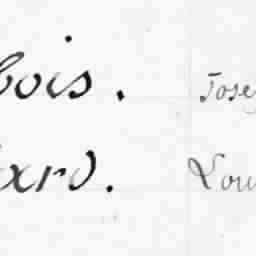 bois. Jose
ard. Lou